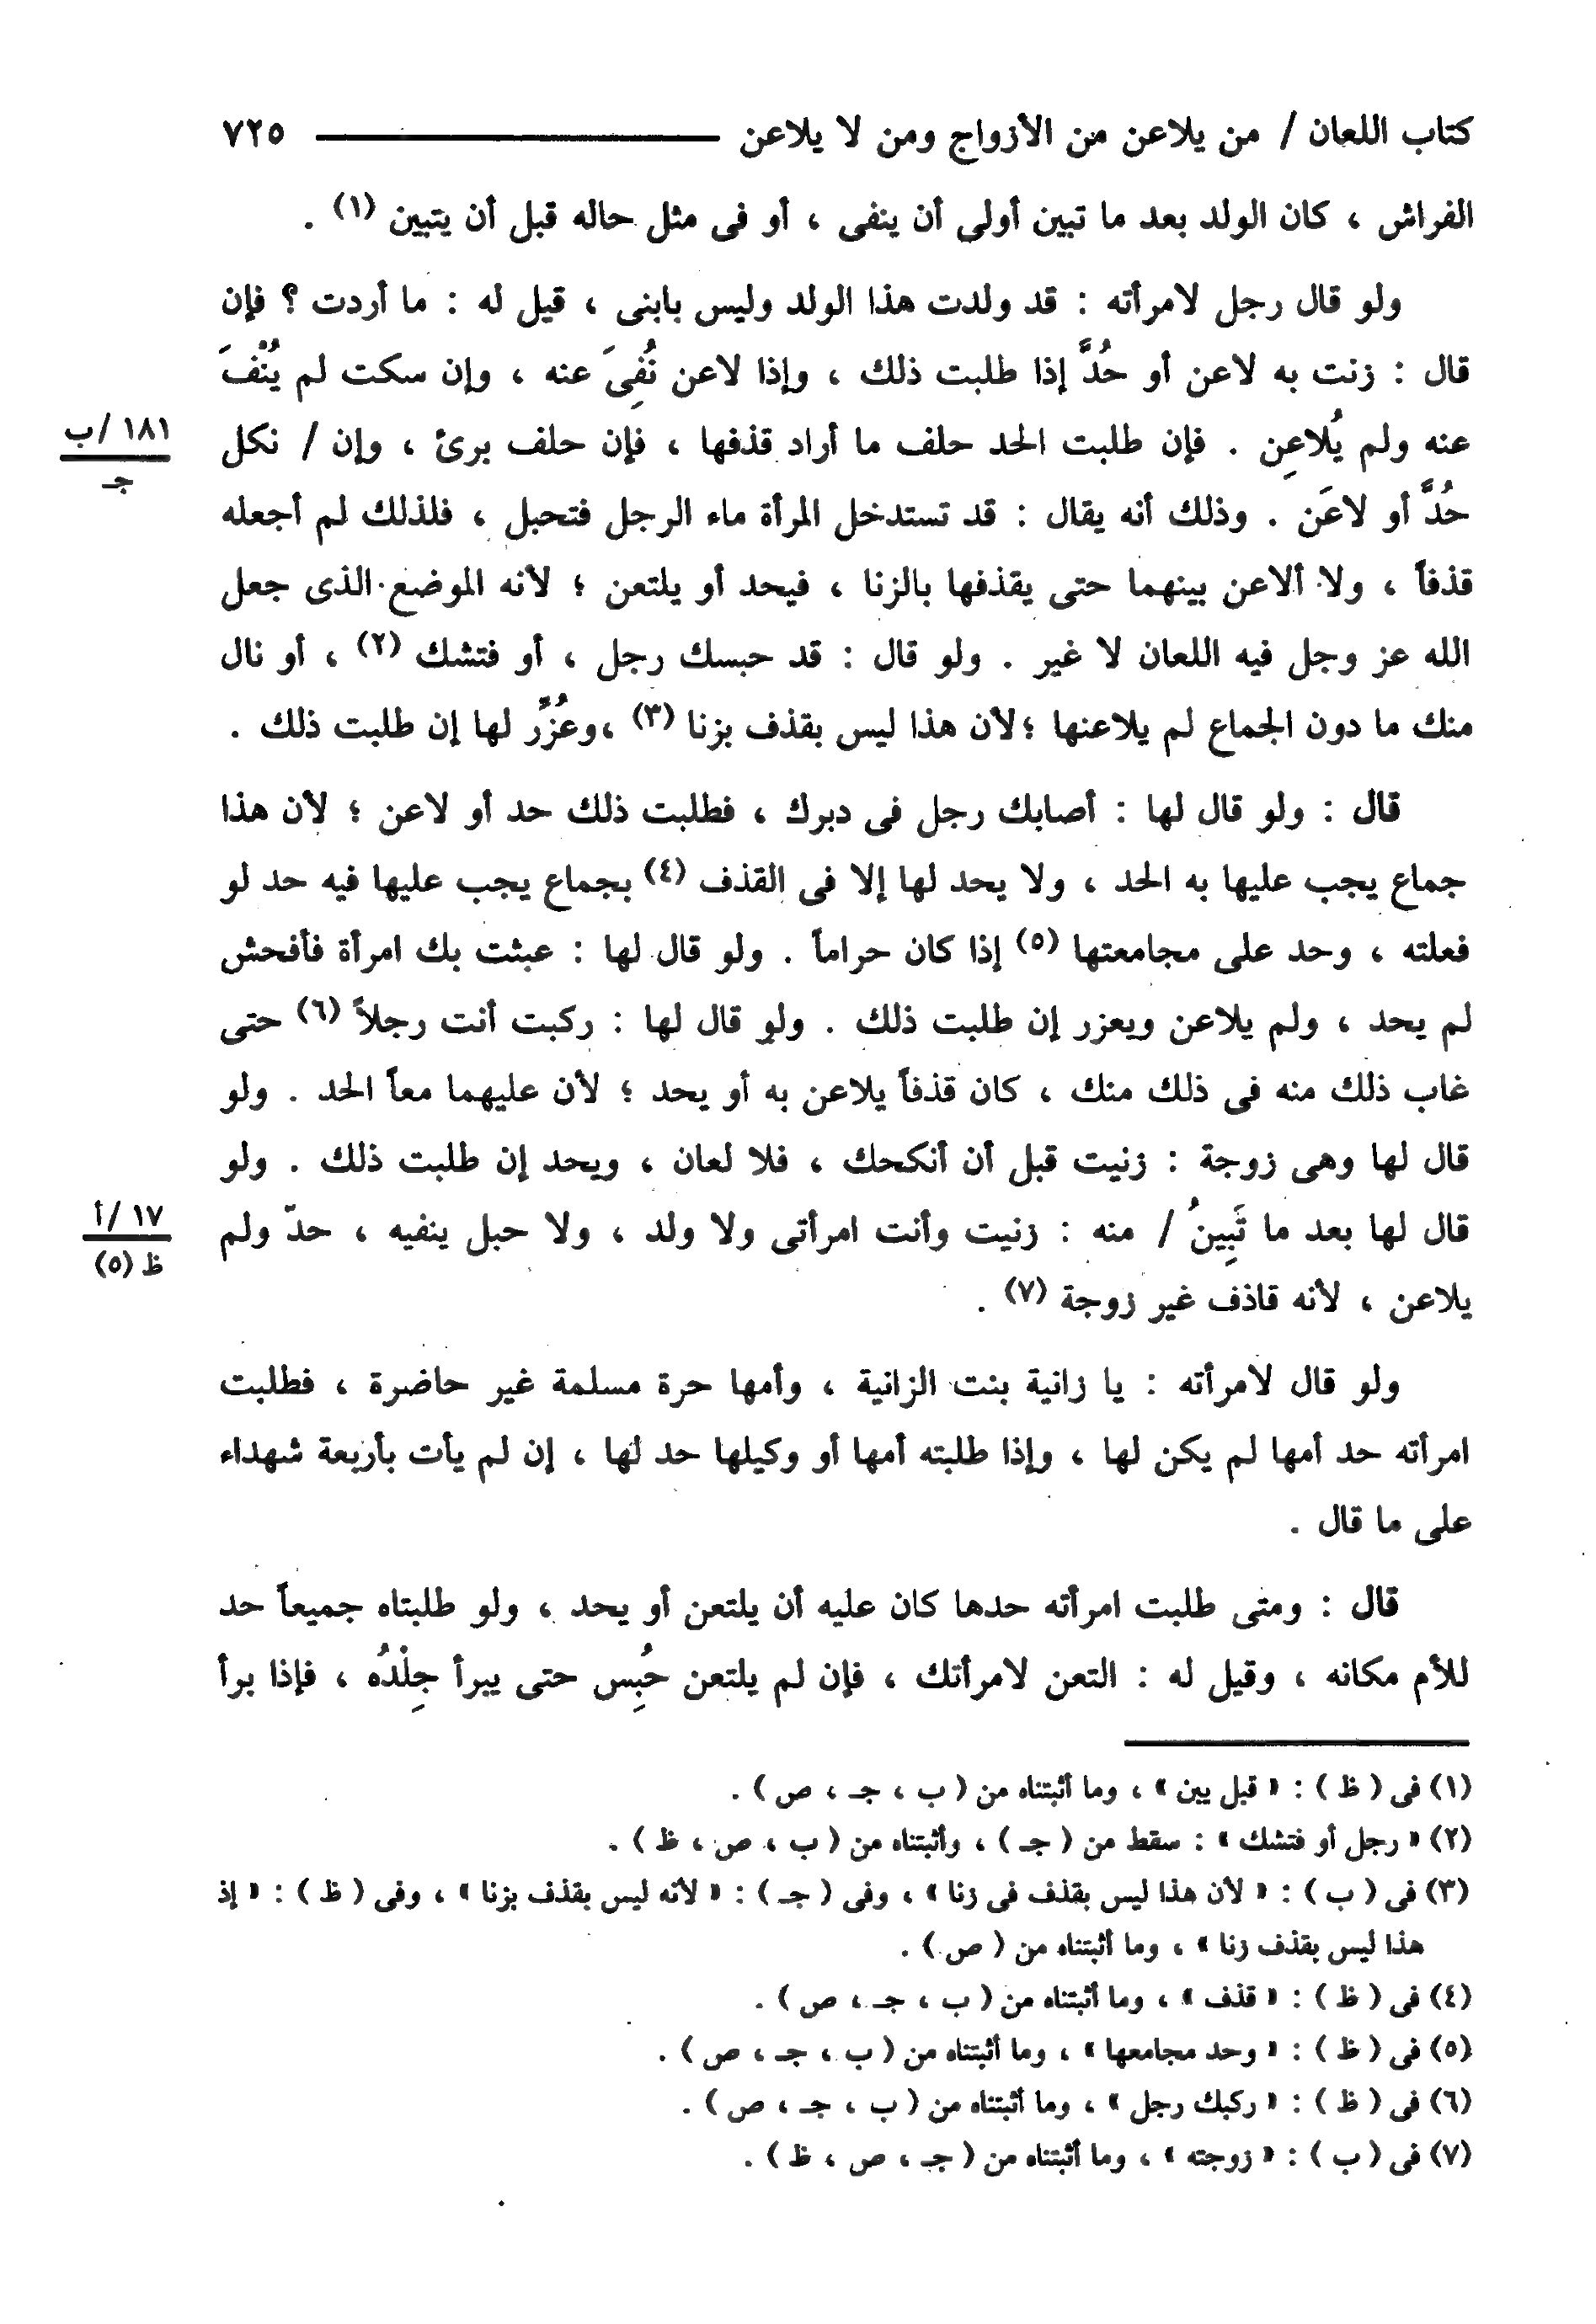 كتاب اللعان / من يلاعن من الأزواج ومن لا يلاعن ٧٢٥
الفراش ، كان الولد بعد ما تبين أولى أن ينفى ، أو فى مثل حاله قبل أن يتبين (١) .
ولو قال رجل لامرأته : قد ولدت هذا الولد وليس بابنى ، قيل له : ما أردت ؟ فإن
قال : زنت به لاعن أو حُدَّ إذا طلبت ذلك ، وإذا لاعن نُفِىَ عنه ، وإن سكت لم يُنْفَ
عنه ولم يُلاعِن . فإن طلبت الحد حلف ما أراد قذفها ، فإن حلف برئ ، وإن / نكل
١٨١ /ب
جـ
حُدَّ أو لاعَن . وذلك أنه يقال : قد تستدخل المرأة ماء الرجل فتحبل ، فلذلك لم أجعله
قذفاً ، ولا ألاعن بينهما حتى يقذفها بالزنا ، فيحد أو يلتعن ؛ لأنه الموضع الذى جعل
الله عز وجل فيه اللعان لا غير . ولو قال : قد حبسك رجل ، أو فتشك (٢) ، أو نال
منك ما دون الجماع لم يلاعنها ؛ لأن هذا ليس بقذف بزنا (٣) ، وعُزِّر لها إن طلبت ذلك .
قال : ولو قال لها : أصابك رجل فى دبرك ، فطلبت ذلك حد أو لاعن ؛ لأن هذا
جماع يجب عليها به الحد ، ولا يحد لها إلا فى القذف (٤) بجماع يجب عليها فيه حد لو
فعلته ، وحد على مجامعتها (٥) إذا كان حراماً . ولو قال لها : عبثت بك امرأة فأفحش
لم يحد ، ولم يلاعن ويعزر إن طلبت ذلك . ولو قال لها : ركبت أنت رجلاً (٦) حتى
غاب ذلك منه فى ذلك منك ، كان قذفاً يلاعن به أو يحد ؛ لأن عليهما معاً الحد . ولو
قال لها وهى زوجة : زنيت قبل أن أنكحك ، فلا لعان ، ويحد إن طلبت ذلك . ولو
قال لها بعد ما تَبِينُ / منه : زنيت وأنت امرأتى ولا ولد ، ولا حبل ينفيه ، حدّ ولم
١٧ /أ
ظ (٥)
يلاعن ، لأنه قاذف غير زوجة (٧) .
ولو قال لامرأته : يا زانية بنت الزانية ، وأمها حرة مسلمة غير حاضرة ، فطلبت
امرأته حد أمها لم يكن لها ، وإذا طلبته أمها أو وكيلها حد لها ، إن لم يأت بأربعة شهداء
على ما قال .
قال : ومتى طلبت امرأته حدها كان عليه أن يلتعن أو يحد ، ولو طلبتاه جميعاً حد
للأم مكانه ، وقيل له : التعن لامرأتك ، فإن لم يلتعن حُبِس حتى يبرأ جِلْدُه ، فإذا برأ
(١) فى ( ظ ) : « قبل يبن » ، وما أثبتناه من ( ب ، جـ ، ص ) .
(٢) « رجل أو فتشك » : سقط من ( جـ ) ، وأثبتناه من ( ب ، ص ، ظ ) .
(٣) فى ( ب ) : « لأن هذا ليس بقذف فى زنا » ، وفى ( جـ ) : « لأنه ليس بقذف بزنا » ، وفى ( ظ ) : « إذ
هذا ليس بقذف زنا » ، وما أثبتناه من ( ص ) .
(٤) فى ( ظ ) : « قذف » ، وما أثبتناه من ( ب ، جـ ، ص ) .
(٥) فى ( ظ ) : « وحد مجامعها » ، وما أثبتناه من ( ب ، جـ ، ص ) .
(٦) فى ( ظ ) : « ركبك رجل » ، وما أثبتناه من ( ب ، جـ ، ص ) .
(٧) فى ( ب ) : « زوجته » ، وما أثبتناه من ( جـ ، ص ، ظ ) .